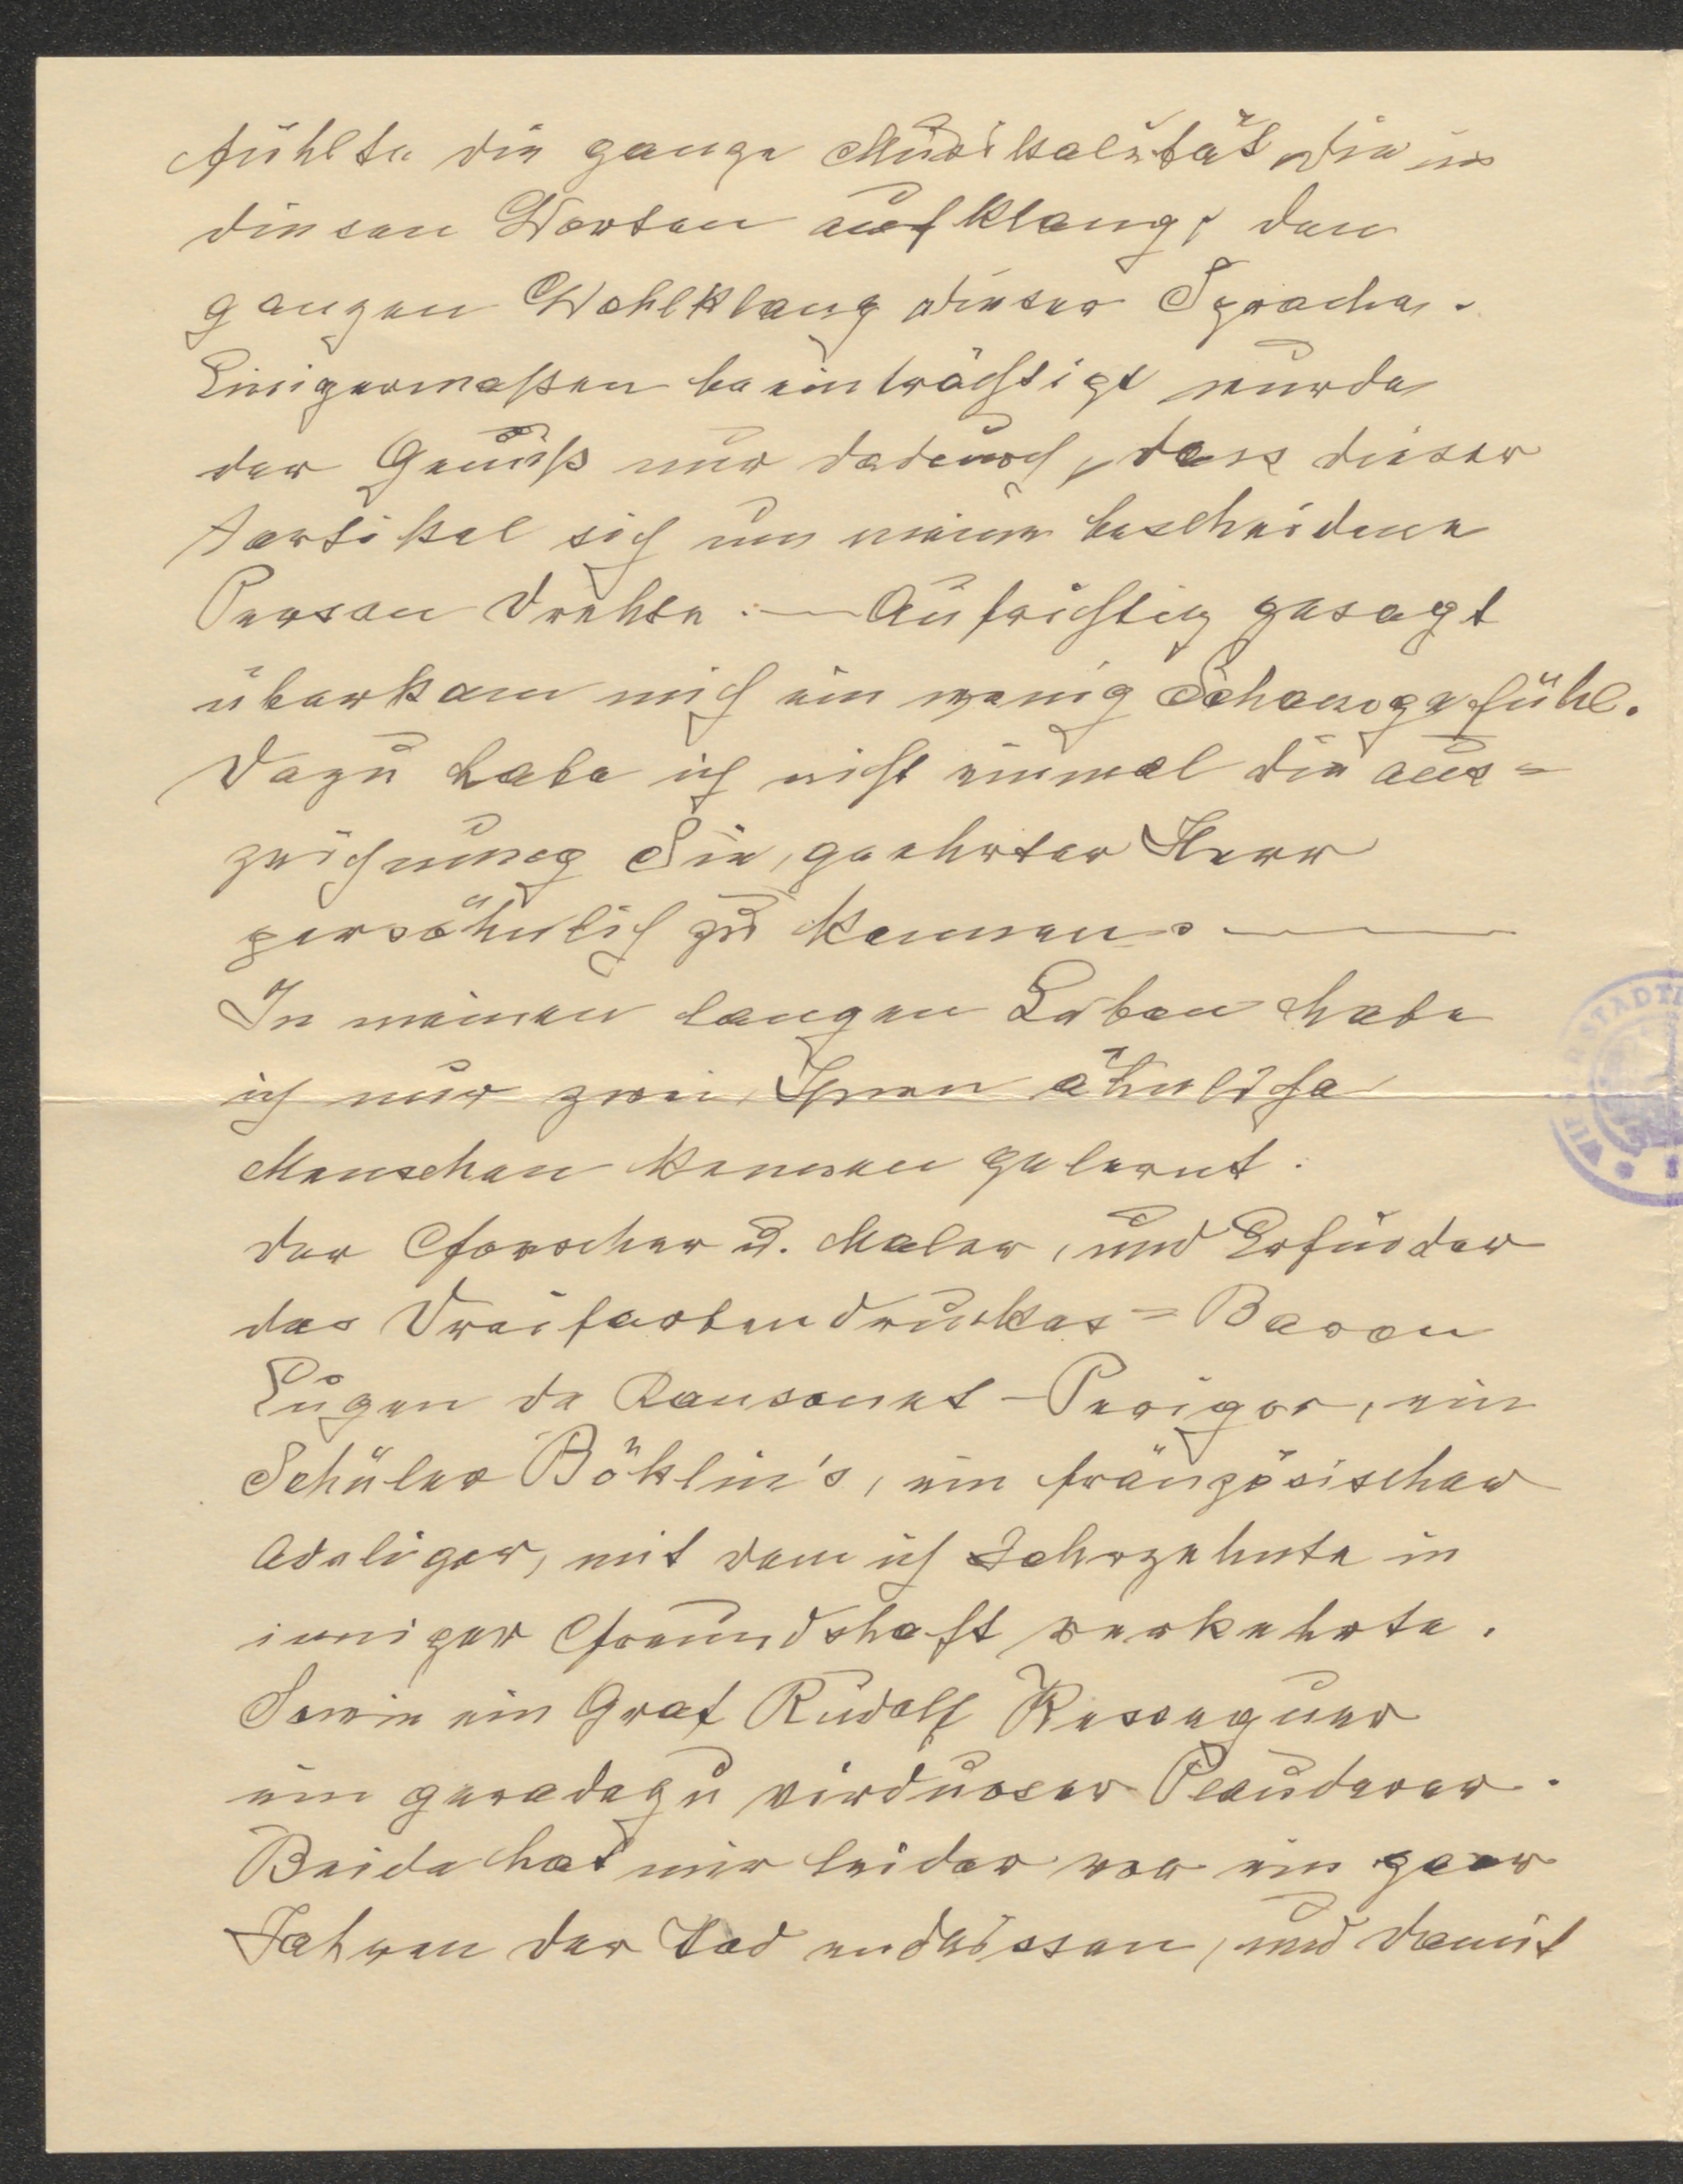 fühlte die ganze Musikalität die in
diesen Worten aufklang, den
ganzen Wohlklang dieser Sprache.
Einigermaßen beeinträchtigt wurde
der Genuß nur dadurch, dass dieser
Aartikel sich um meine bescheidene
Person drehte. — Aufrichtig gesagt
überkam mich ein wenig Schamgefühl.
Dazu habe ich nicht einmal die Aus=
zeichnung Sie, geehrter Herr
persöhnlich zu kennen. —
In meinen langen Leben habe
ich nur zwei, Ihnen ähnliche
Menschen kennen gelernt.
der Forscher u. Maler, und Erfinder
des Dreifarbendruckes = Baron
Eugen de Ransonet - Perigor, ein
Schüler Böklin's, ein französischer
Adeliger, mit dem ich Jahrzehnte in
inniger Freundschaft verkehrte.
Sowie ein Graf Rudolf Resseguer
ein geradezu virduoser Plauderer.
Beide hat mir leider vor ein paar
Jahren der Tod endrissen, und damit
STADT